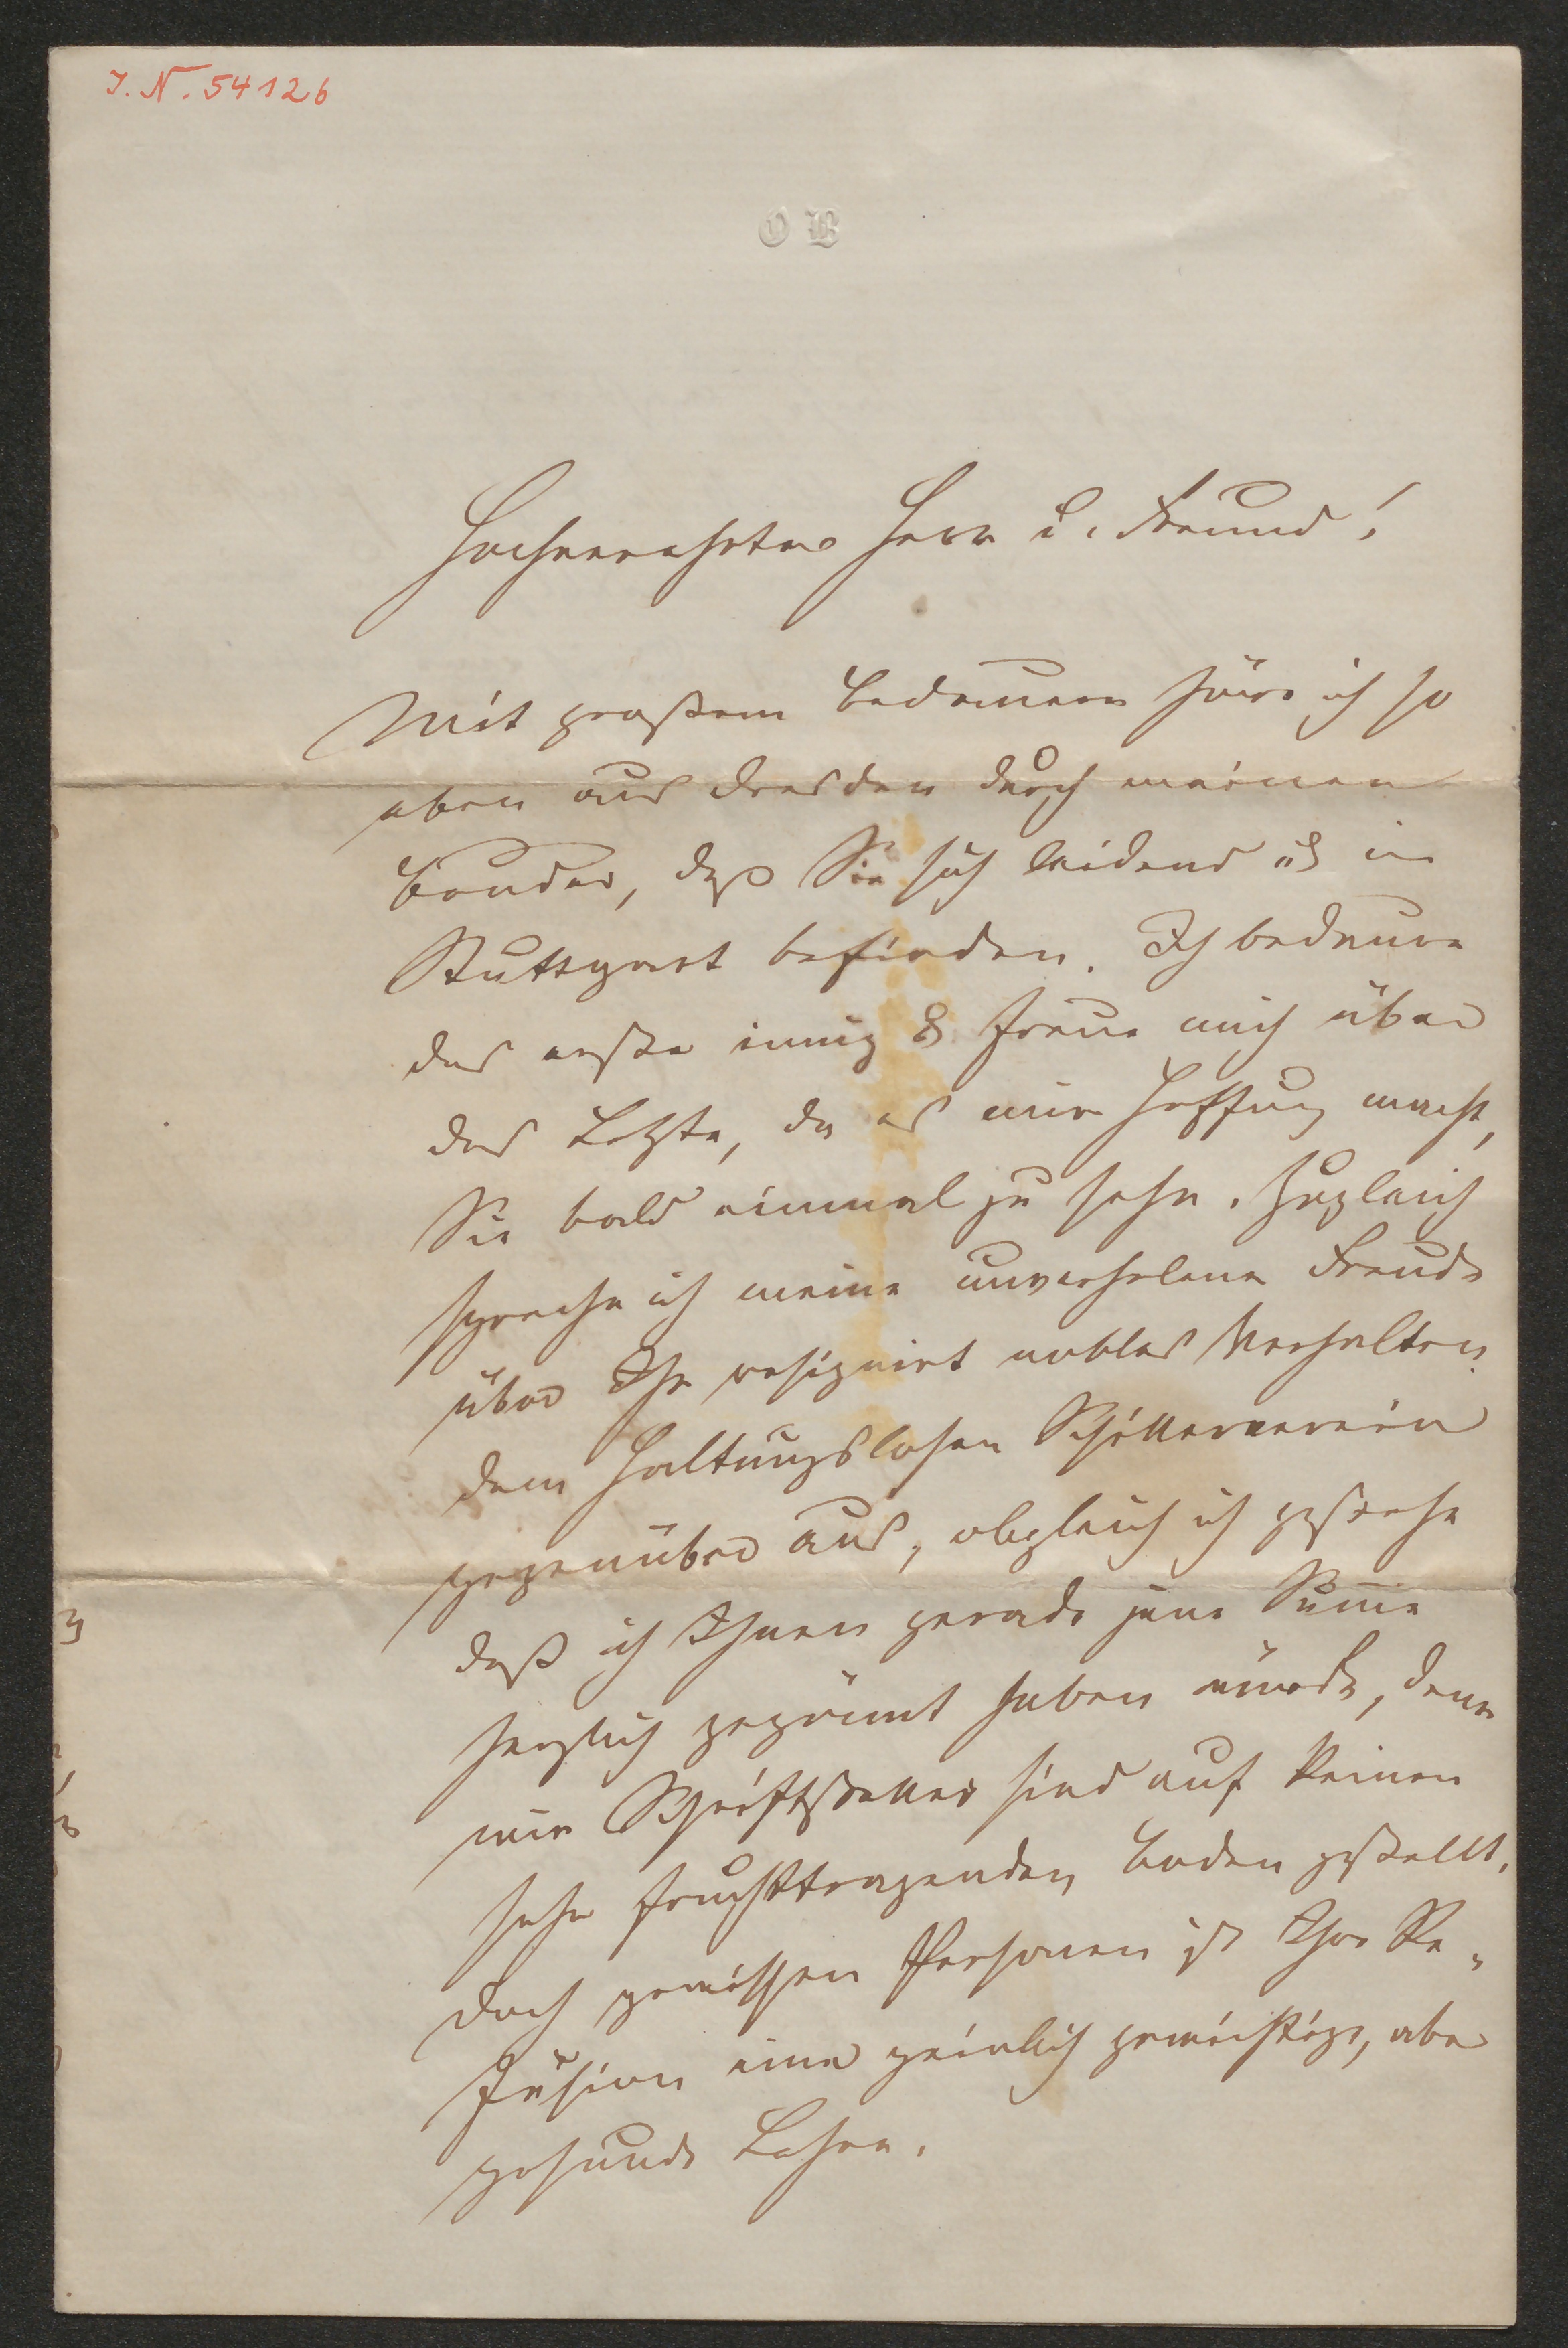 J. N. 54126
O B
Hochverehrter Herr u. Freund!
Mit großem Bedauern höre ich so
eben aus Dresden durch meinen
Bruder, daß Sie sich leidend u in
Stuttgart befinden. Ich bedaure
das erste innig & freue mich über
das Letzte, da es mir Hoffnung macht,
Sie bald einmal zu sehn. Zugleich
spreche ich meine unverholene Freude
über Ihr resignirt nobles Verhalten
dem haltungslosen Schillerverein
gegenüber aus, obgleich ich gestehe
daß ich Ihnen gerade jene Sum̅e
herzlich gegönnt haben würde, denn
wir Schriftsteller sind auf keinen
sehr fruchttragenden Boden gestellt.
Doch gewissen Personen ist Ihre Re-
füsion eine peinlich gewichtige, aber
gesunde Lehre.